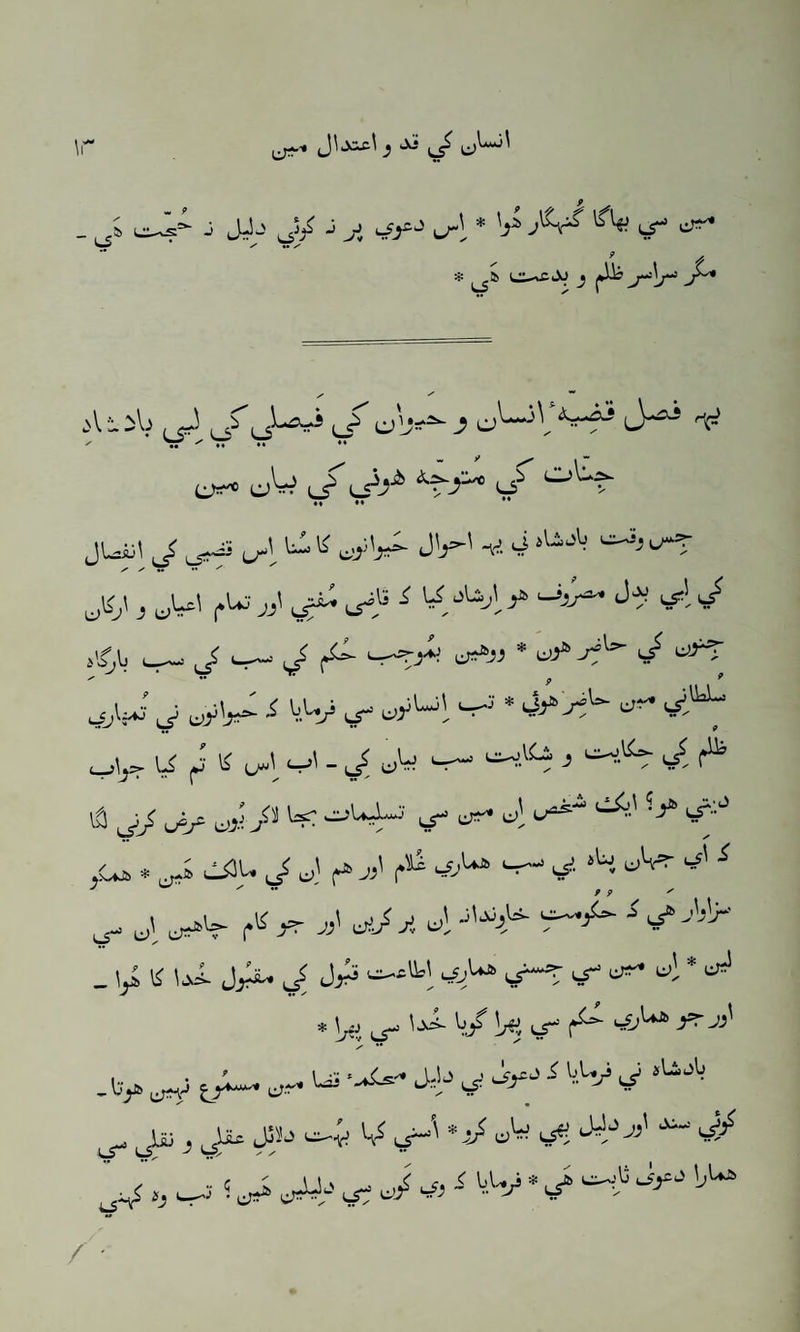 انسان کي قد و اعتدال مین ۱۳
مین سي بهاکا گنهگار هوا * اس دعوي پر و کوئي دلیل و حجت هي -
مگر سراسر ظلم و بدعت هي *
یهه فصل قضیۂ انسان و حیوان کي فیصل کي لیي بادشاه
جنات کي متوجه هوني کي بیان مین
جس وقت بادشاه ني یهه احوال حیوانون کا سنا اس قضیي کي انفصال
کي لیي بدل مصروف هو ارشاد کیا که قاضي مفتي اور تمام اعیان و ارکان
جنون کي حاضر هون * وونهین بموجب حکم کي سب کي سب بارگاه
سلطاني مین حاضر هوئي * تب انسانون سي فرمایا که حیوانون ني تمهاري
ظلم کي حکایت و شکایت سب بیان کي - اب اس کا تم کیا جواب
دیتي هو ؟ ایک شخص ان مین سي تسلیمات بجا لاکر یون عرض کرني لگا
که اي جهان پناه یي سب هماري غلام اور هم ان کي مالک هین * همکو
سزاوار هي که حکومت خاوندانه ان پر کرین اور جو کام چاهین ان سي
لین * ان مین سي جسني هماري اطاعت قبول کي مقبول خدا کا هوا -
اور جو هماري حکم سي پهرا گویا خدا سي پهرا *
بادشاه ني فرمایا که دعوي بي دلیل محکمۂ قضا مین مسموع نهین هوتا -
کوئي سند اور دلیل بهي بیان کرو * اسني کها بهت دلائل عقلي و نقلي سي
همارا دعوي ثابت هي * فرمایا که وي کون سي دلیلین هین ؟ تب وه کهني